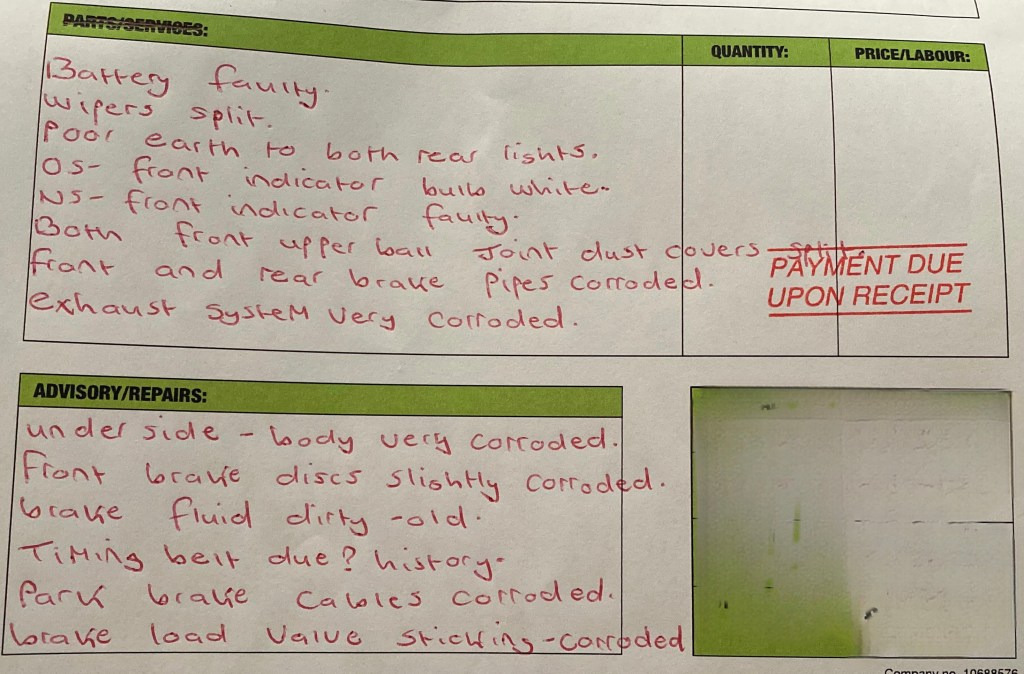 PARTS/SERVICES:
QUANTITY:
PRICE/LABOUR:
Battery faulty.
Wipers split.
Poor earth to both rear lights.
OS- front indicator bulb white.
NS- front indicator faulty.
Both front upper ball Joint dust covers split.
front and rear brake pipes corroded.
exhaust system very corroded.
PAYMENT DUE
UPON RECEIPT
ADVISORY/REPAIRS:
underside - body very corroded.
Front brake discs slightly corroded.
brake fluid dirty -old.
Timing belt due? history.
Park brake cables corroded.
brake load valve sticking-corroded
Company no. 10688576